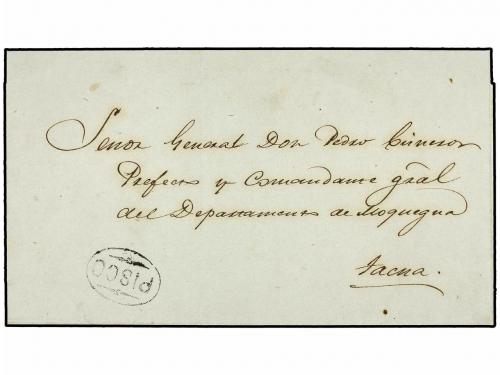 Señor General Don Pedro Cisneros
Prefecto y Comandante gral
del Departamento de Moquegua
Tacna.
PISCO